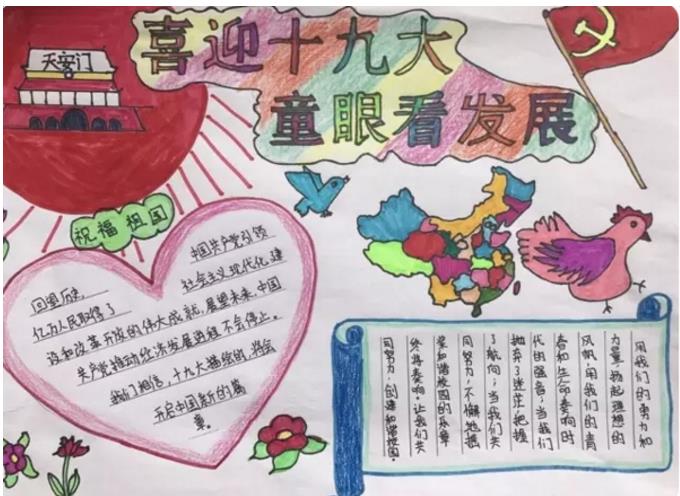 天安门
喜迎十九大
童眼看发展
祝福祖国
回望历史,中国共产党引领
亿万人民取得了社会主义现代化建
设和改革开放的伟大成就,展望未来,中国
共产党推动经济发展进程不会停止。
我们相信,十九大描绘的,将会
开启中国新的篇
章。
用我们的努力和
力量,扬起理想的
风帆,用我们的青
春和生命奏响时
代的强音;当我们
抛弃了迷茫,把握
了航向;当我们共
同努力,不懈地摇
桨和谐校园的乐章
终将奏响。让我们共
同努力,创建和谐校园。